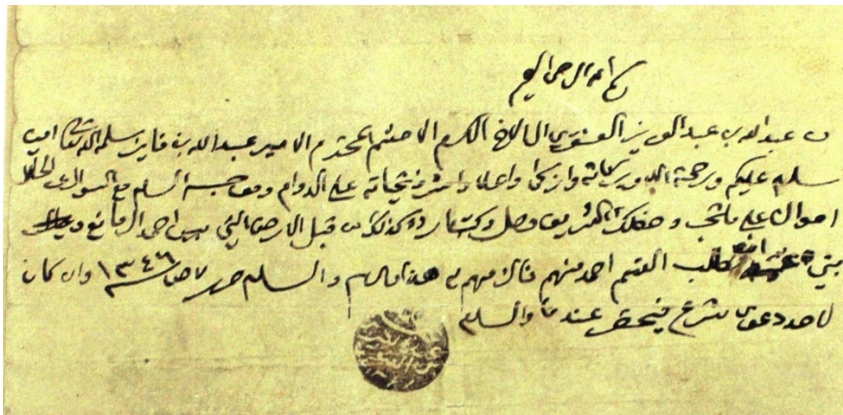 بسم الله الرحمن الرحيم
من عبدالله بن عبدالعزيز العنقري الى الاخ المكرم الاحشم المحترم الامير عبدالله بن فايز سلمه الله تعالى امين
سلام عليكم ورحمة الله وبركاته وازكى واعلا واشرف تحياته على الدوام وموجب السلام مع السوال عن الحال
احوالنا على ما تحب وخطك الشريف وصل وكذلك من قبل الارض التي بين احمد المانع
بيتي طالب القسم احمد منهم والسلام حرر ٧ ص ١٣٤٦ وان كان
لاحد دعوى شرع فيحضر عندنا والسلام